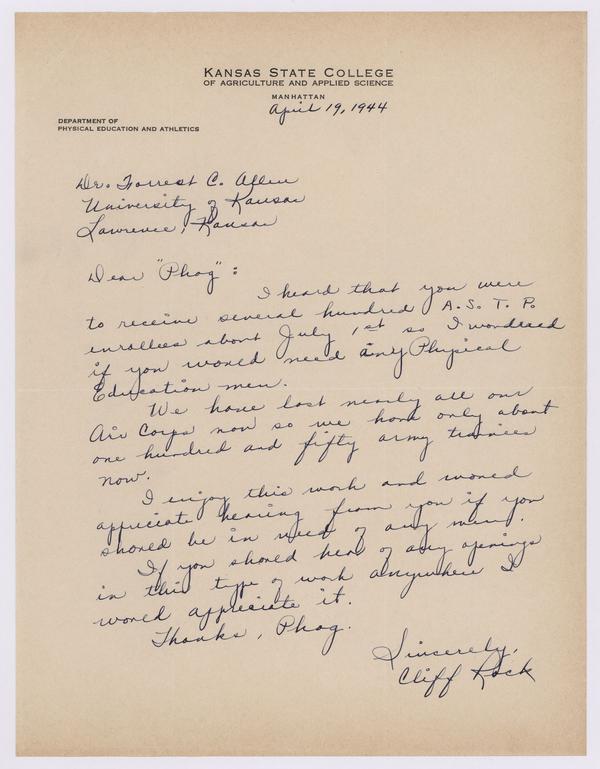 KANSAS STATE COLLEGE
OF AGRICULTURE AND APPLIED SCIENCE
MANHATTAN
April 19, 1944
DEPARTMENT OF
PHYSICAL EDUCATION AND ATHLETICS
Dr. Forrest C. Allen
University of Kansas
Lawrence, Kansas
Dear "Phog":
I heard that you were
to receive several hundred A.S.T.P.
enrollees about July 1st so I wondered
if you would need any Physical
Education men.
We have lost nearly all our
Air Corps now so we have only about
one hundred and fifty army trainees
now.
I enjoy this work and would
appriciate hearing from you if you
should be in need of any men.
If you should hear of any openings
in this type of work anywhere I
would appreciate it.
Thanks, Phog.
Sincerely,
Cliff Rock